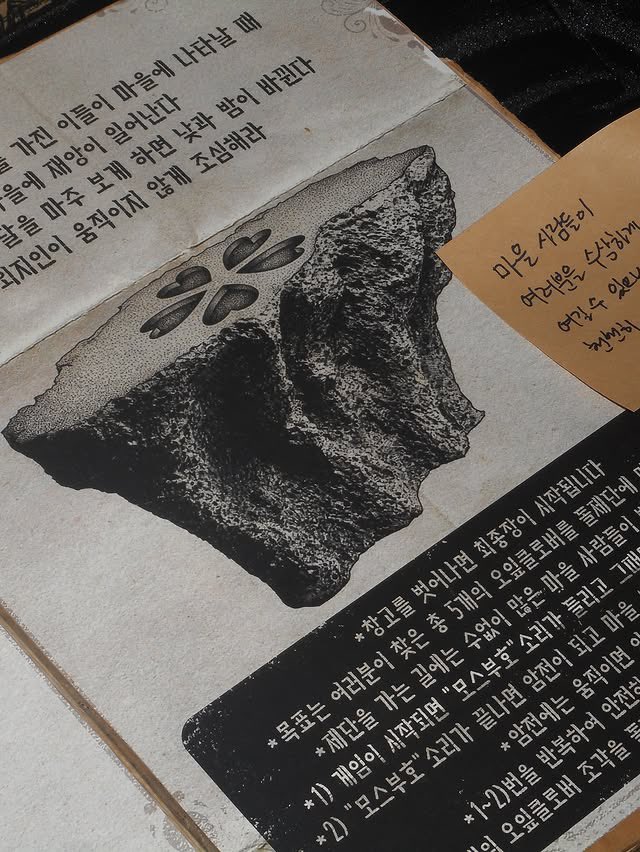 가진 이들이 마을에 나타날 때
마을에 재앙이 일어난다
달을 마주 보게 하면 낮과 밤이 바뀐다
외지인이 움직이지 않게 조심해라
마을 사람들이
여러분을 수상하게
여길 수 있으니
천천히
*창고를 벗어나면 최종장이 시작됩니다
목표는 여러분이 찾은 총 5개의 오잎클로버를 돌제단에
*제단을 가는 길에는 수없이 많은 마을 사람들이
*1) 게임이 시작되면 "모스부호" 소리가 들리고 그때
*2) "모스부호" 소리가 끝나면 암전이 되고 마을
*암전에는 움직이면
*1~2)번을 반복하여 안전
오잎클로버 조각을